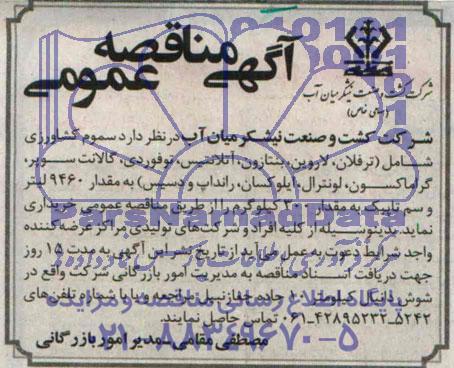 آگهی مناقصه
عمومی
شرکت کشت و صنعت نیشکر میان آب
(سهامی خاص)
شرکت کشت و صنعت نیشکر میان آب در نظر دارد سموم کشاورزی
شامل (ترفلان، لاروین، بنتازون، آتلانتیس، توفوردی، گالانت سوپر،
گراماکسون، لونترال، ایلوکسان، رانداپ و دسیس) به مقدار ۹۴۶۰ لیتر
و سم تاپیک به مقدار کیلوگرم را از طریق مناقصه عمومی خریداری
نماید. بدینوسیله از کلیه افراد و شرکت‌های تولیدی و مراکز عرضه‌کننده
واجد شرایط دعوت به عمل می‌آید از تاریخ نشر این آگهی به مدت ۱۵ روز
جهت دریافت اسناد مناقصه به مدیریت امور بازرگانی شرکت واقع در
شوش دانیال کیلومتر جاده مراجعه و یا با شماره تلفن‌های
۵۲۴۲-۴۲۸۹۵۲۳۲-۰۶۱ تماس حاصل نمایند.
مصطفی مقامی - مدیر امور بازرگانی
ParsNamadData
۰۲۱-۸۸۳۴۹۶۷۰-۵